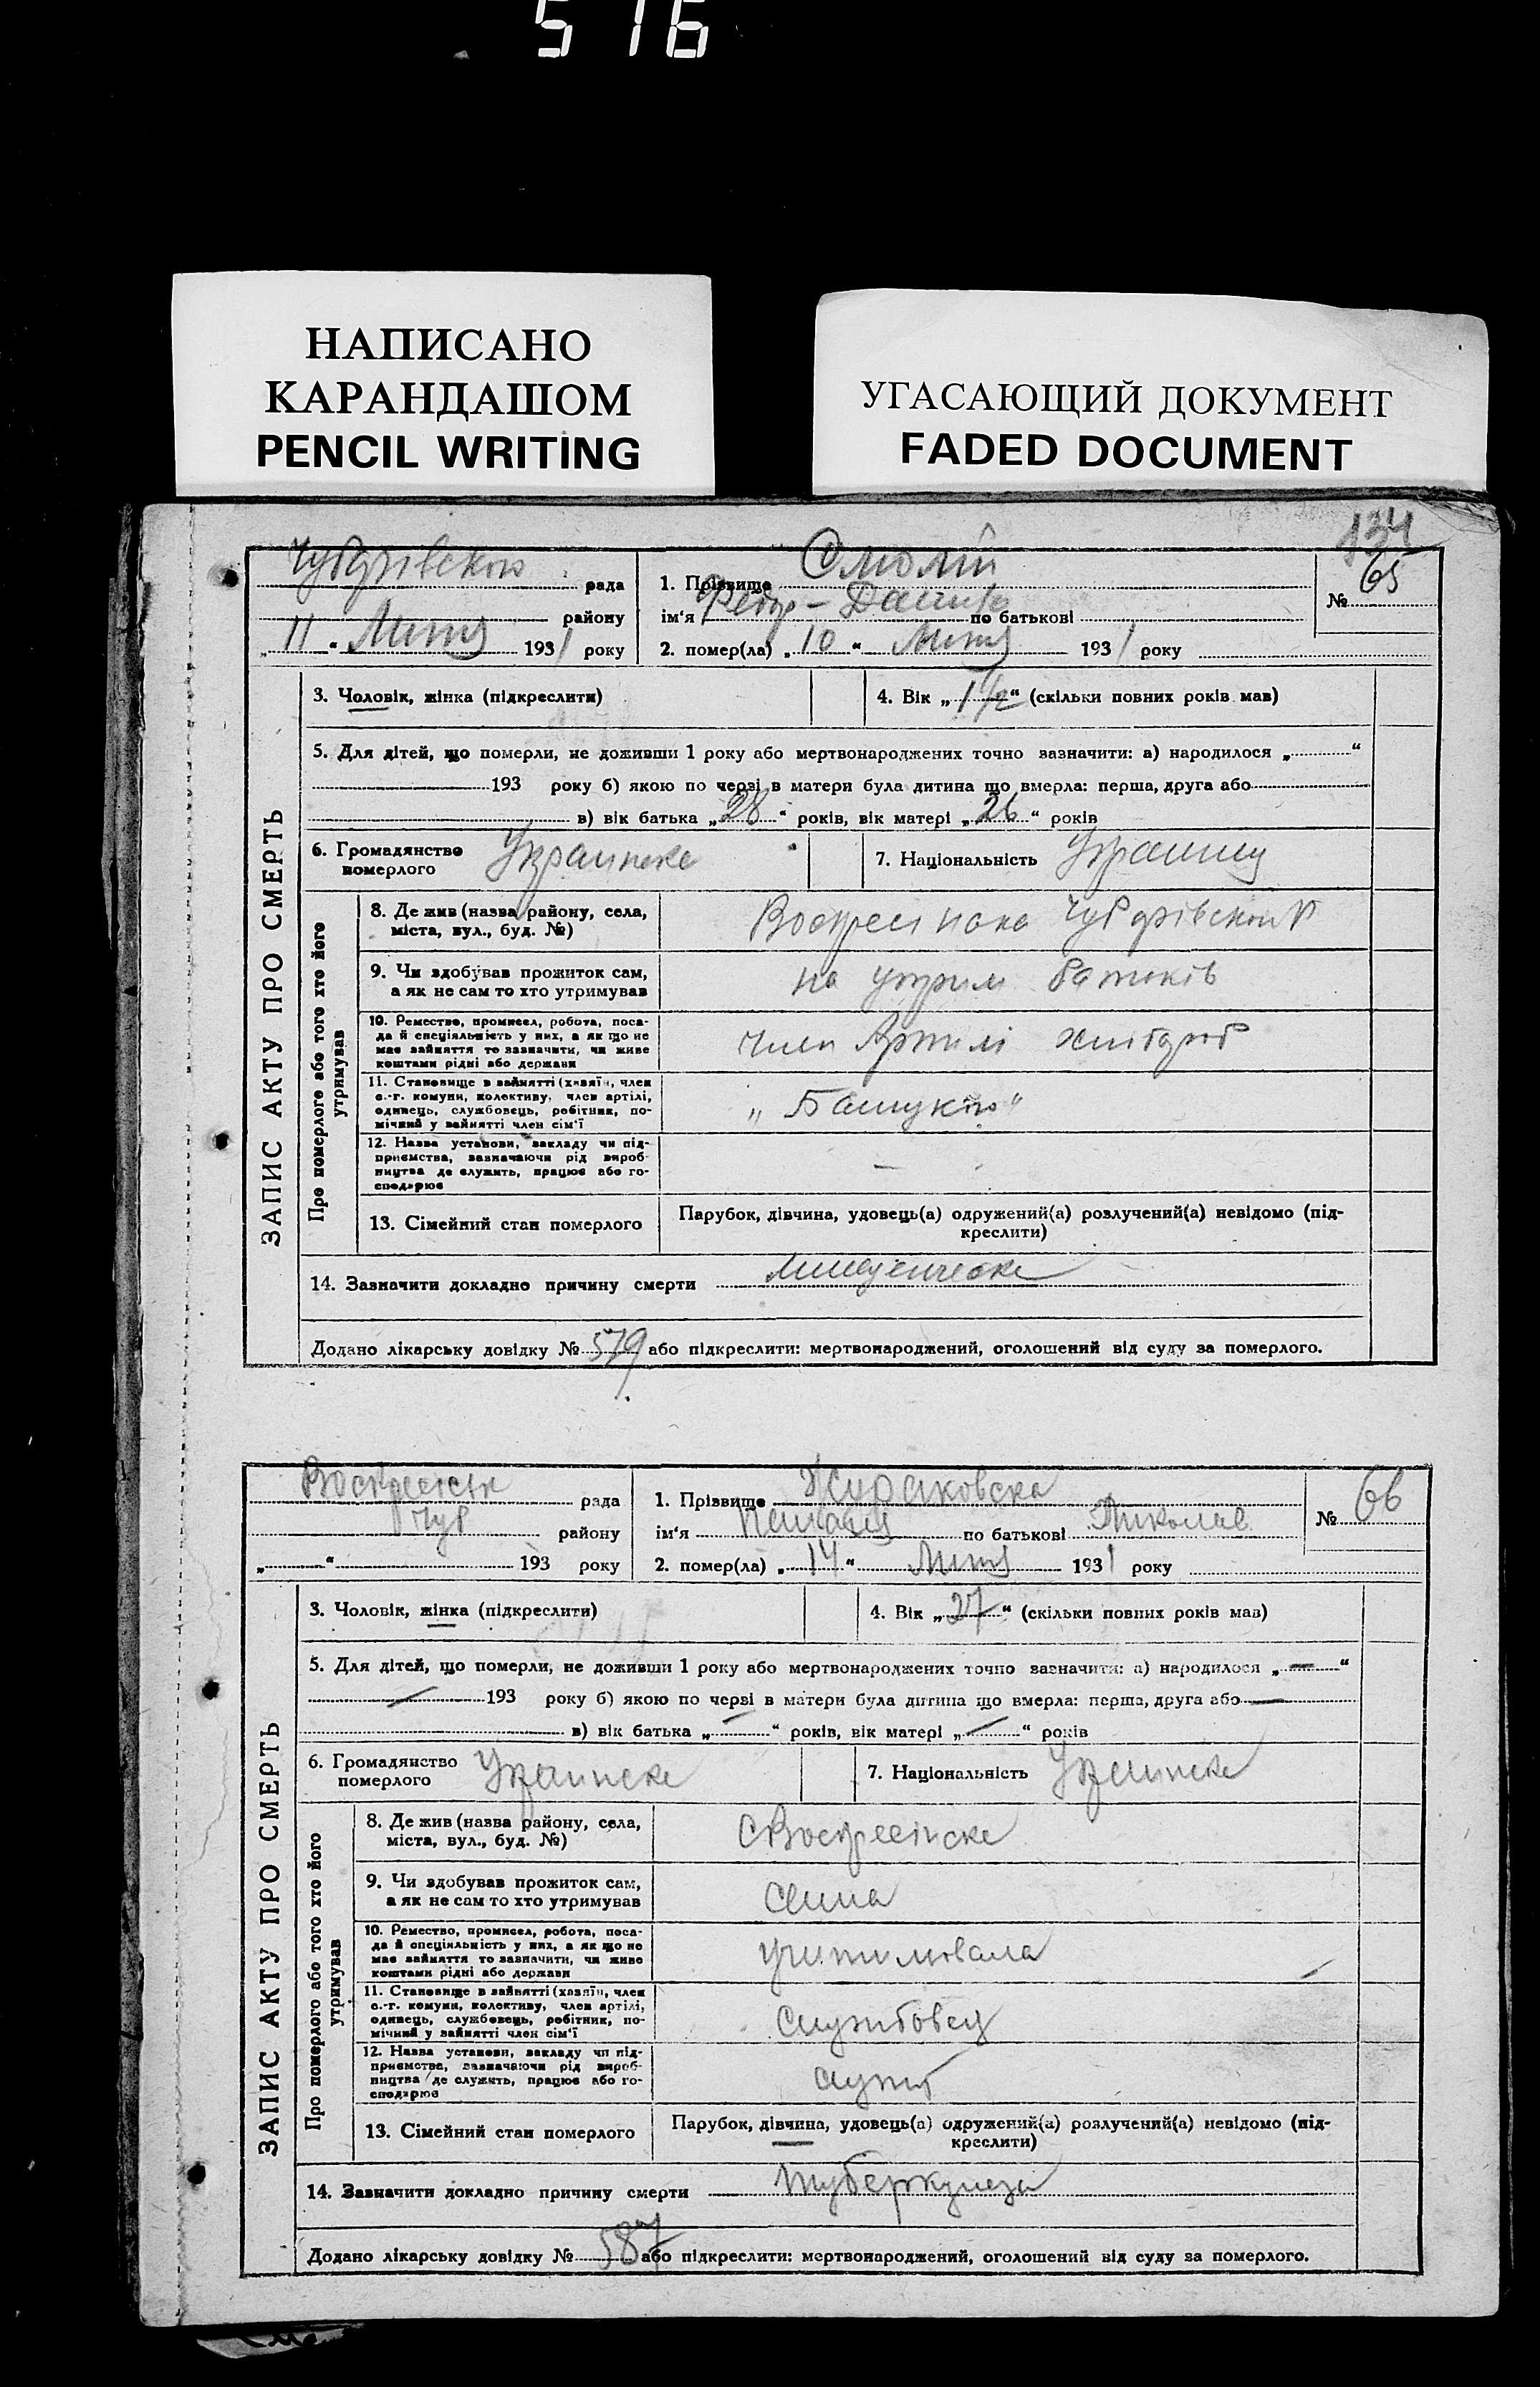 516
НАПИСАНО
КАРАНДАШОМ
PENCIL WRITING
УГАСАЮЩИЙ ДОКУМЕНТ
FADED DOCUMENT
134
рада
1. Прізвище Смолій
№ 65
району
ім‘я Федір - по батькові
„ 11 “ 1931 року
2. помер(ла) „ 10 “ 1931 року
ЗАПИС АКТУ ПРО СМЕРТЬ
3. Чоловік, жінка (підкреслити)
4. Вік „ 1 1/2 “ (скільки повних років мав)
5. Для дітей, що померли, не доживши 1 року або мертвонароджених точно зазначити: а) народилося „ “
193 року б) якою по черзі в матери була дитина що вмерла: перша, друга або
в) вік батька „ 28 “ років, вік матері „ 26 “ років
6. Громадянство
померлого
Украинске
7. Національність
Про померлого або того хто його
утримував
8. Де жив (назва району, села,
міста, вул., буд. №)
9. Чи здобував прожиток сам,
а як не сам то хто утримував
на утрим батьків
10. Ремество, промисел, робота, поса-
да й спеціяльність у них, а як що не
має зайняття то зазначити, чи живе
коштами рідні або держави
член Артилі хлібороб
11. Становище в зайнятті (хазяїн, член
с.-г. комуни, колективу, член артілі,
одинець, службовець, робітник, по-
мічний у зайнятті член сім‘ї
12. Назва установи, закладу чи під-
приємства, зазначаючи рід вироб-
ництва де служить, працює або го-
сподарює
—
13. Сімейний стан померлого
Парубок, дівчина, удовець(а) одружений(а) розлучений(а) невідомо (під-
креслити)
14. Зазначити докладно причину смерти
Додано лікарську довідку № 579 або підкреслити: мертвонароджений, оголошений від суду за померлого.
рада
1. Прізвище Жураковска
№ 66
Чуб району
ім‘я по батькові Николае
„ “ 193 року
2. помер(ла) „ 14 “ 1931 року
ЗАПИС АКТУ ПРО СМЕРТЬ
3. Чоловік, жінка (підкреслити)
4. Вік „ 27 “ (скільки повних років мав)
5. Для дітей, що померли, не доживши 1 року або мертвонароджених точно зазначити: а) народилося „ — “
193 року б) якою по черзі в матери була дитина що вмерла: перша, друга або —
в) вік батька „ — “ років, вік матері „ — “ років
6. Громадянство
померлого
Украинске
7. Національність Украинска
Про померлого або того хто його
утримував
8. Де жив (назва району, села,
міста, вул., буд. №)
с Воскресінске
9. Чи здобував прожиток сам,
а як не сам то хто утримував
сама
10. Ремество, промисел, робота, поса-
да й спеціяльність у них, а як що не
має зайняття то зазначити, чи живе
коштами рідні або держави
учителювала
11. Становище в зайнятті (хазяїн, член
с.-г. комуни, колективу, член артілі,
одинець, службовець, робітник, по-
мічний у зайнятті член сім‘ї
службовец
12. Назва установи, закладу чи під-
приємства, зазначаючи рід вироб-
ництва де служить, працює або го-
сподарює
13. Сімейний стан померлого
Парубок, дівчина, удовець(а) одружений(а) розлучений(а) невідомо (під-
креслити)
14. Зазначити докладно причину смерти туберкулеза
Додано лікарську довідку № 587 або підкреслити: мертвонароджений, оголошений від суду за померлого.